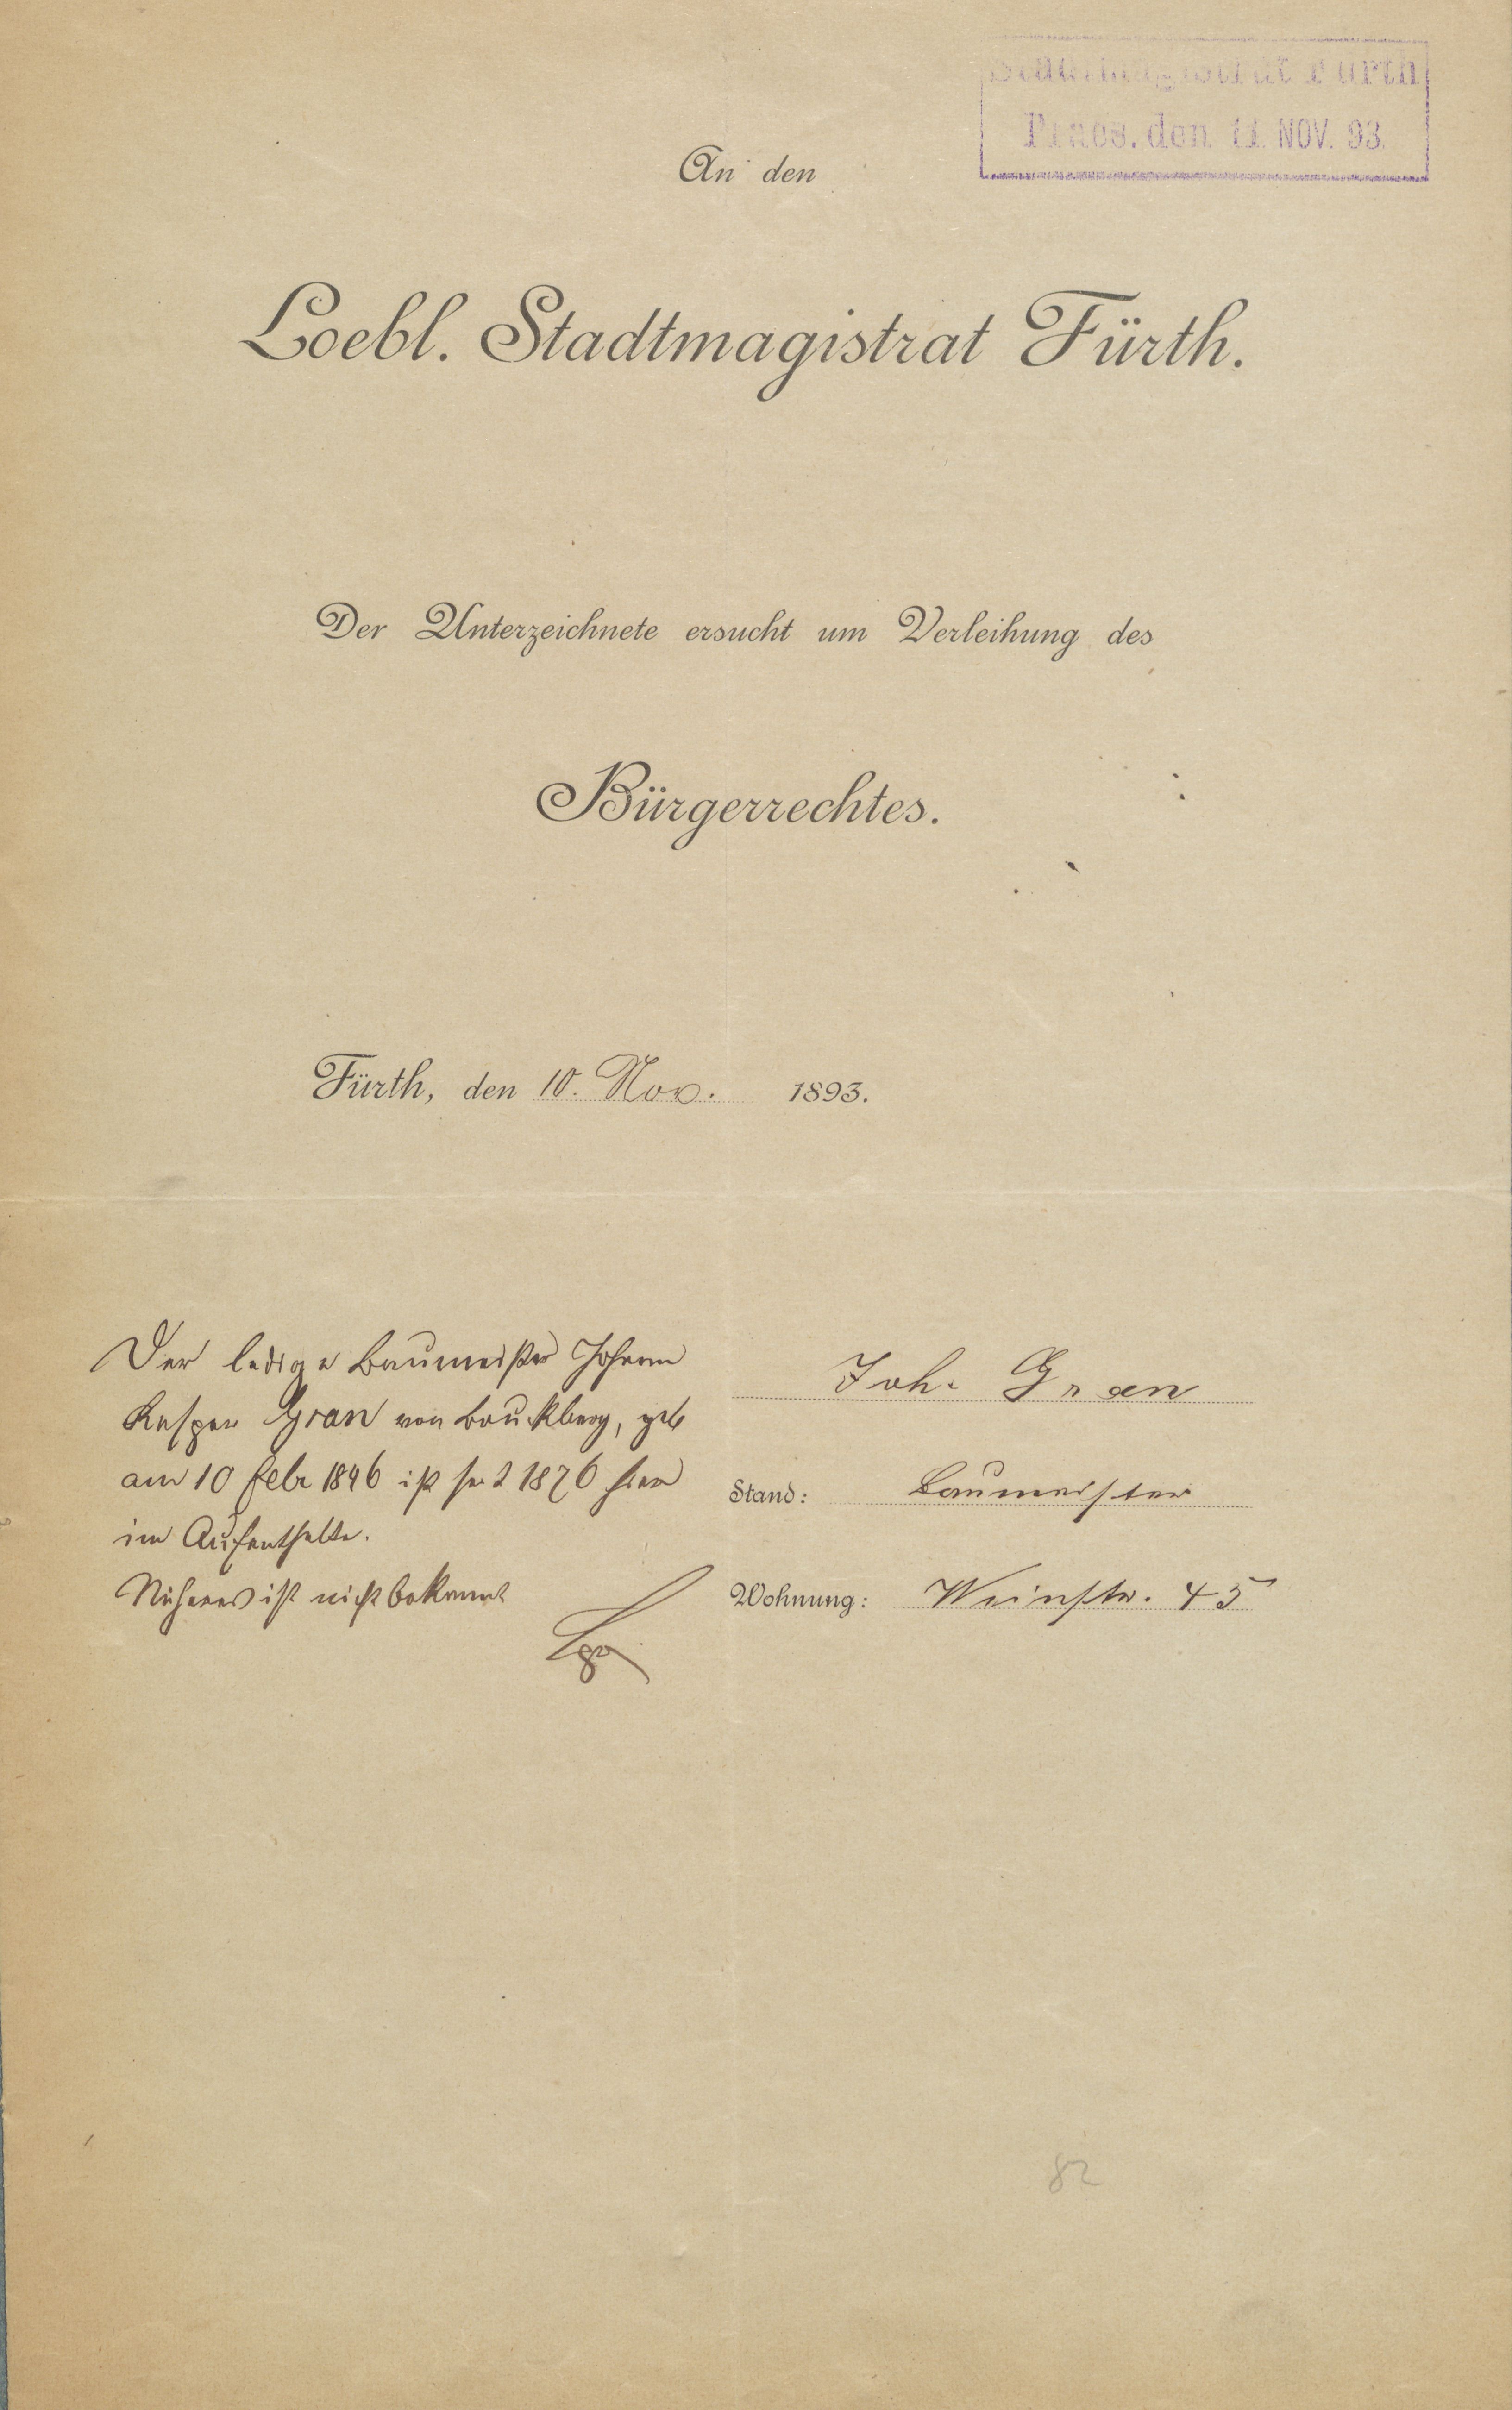 Stadtmagistrat Fürth
Praes. den 11. NOV. 93.
An den
Loebl. Stadtmagistrat Fürth.
Der Unterzeichnete ersucht um Verleihung des
Bürgerrechtes.
Fürth, den 10. Nov. 1893.
Joh. Gran
Stand: Baumeister
Wohnung: Weinstr. 45
Der ledige Baumeister Johann
Kaspar Gran von Bruckberg, geb
am 10 Febr 1846 ist seit 1876 hier
im Aufenthalte.
Näheres ist nicht bekannt
82